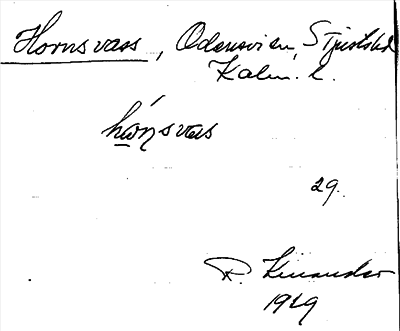 Hornsvass, Odensvi sn, S Tjusts hd
Kalm. l.
hórnsvas
29.
R. Kinander
1929